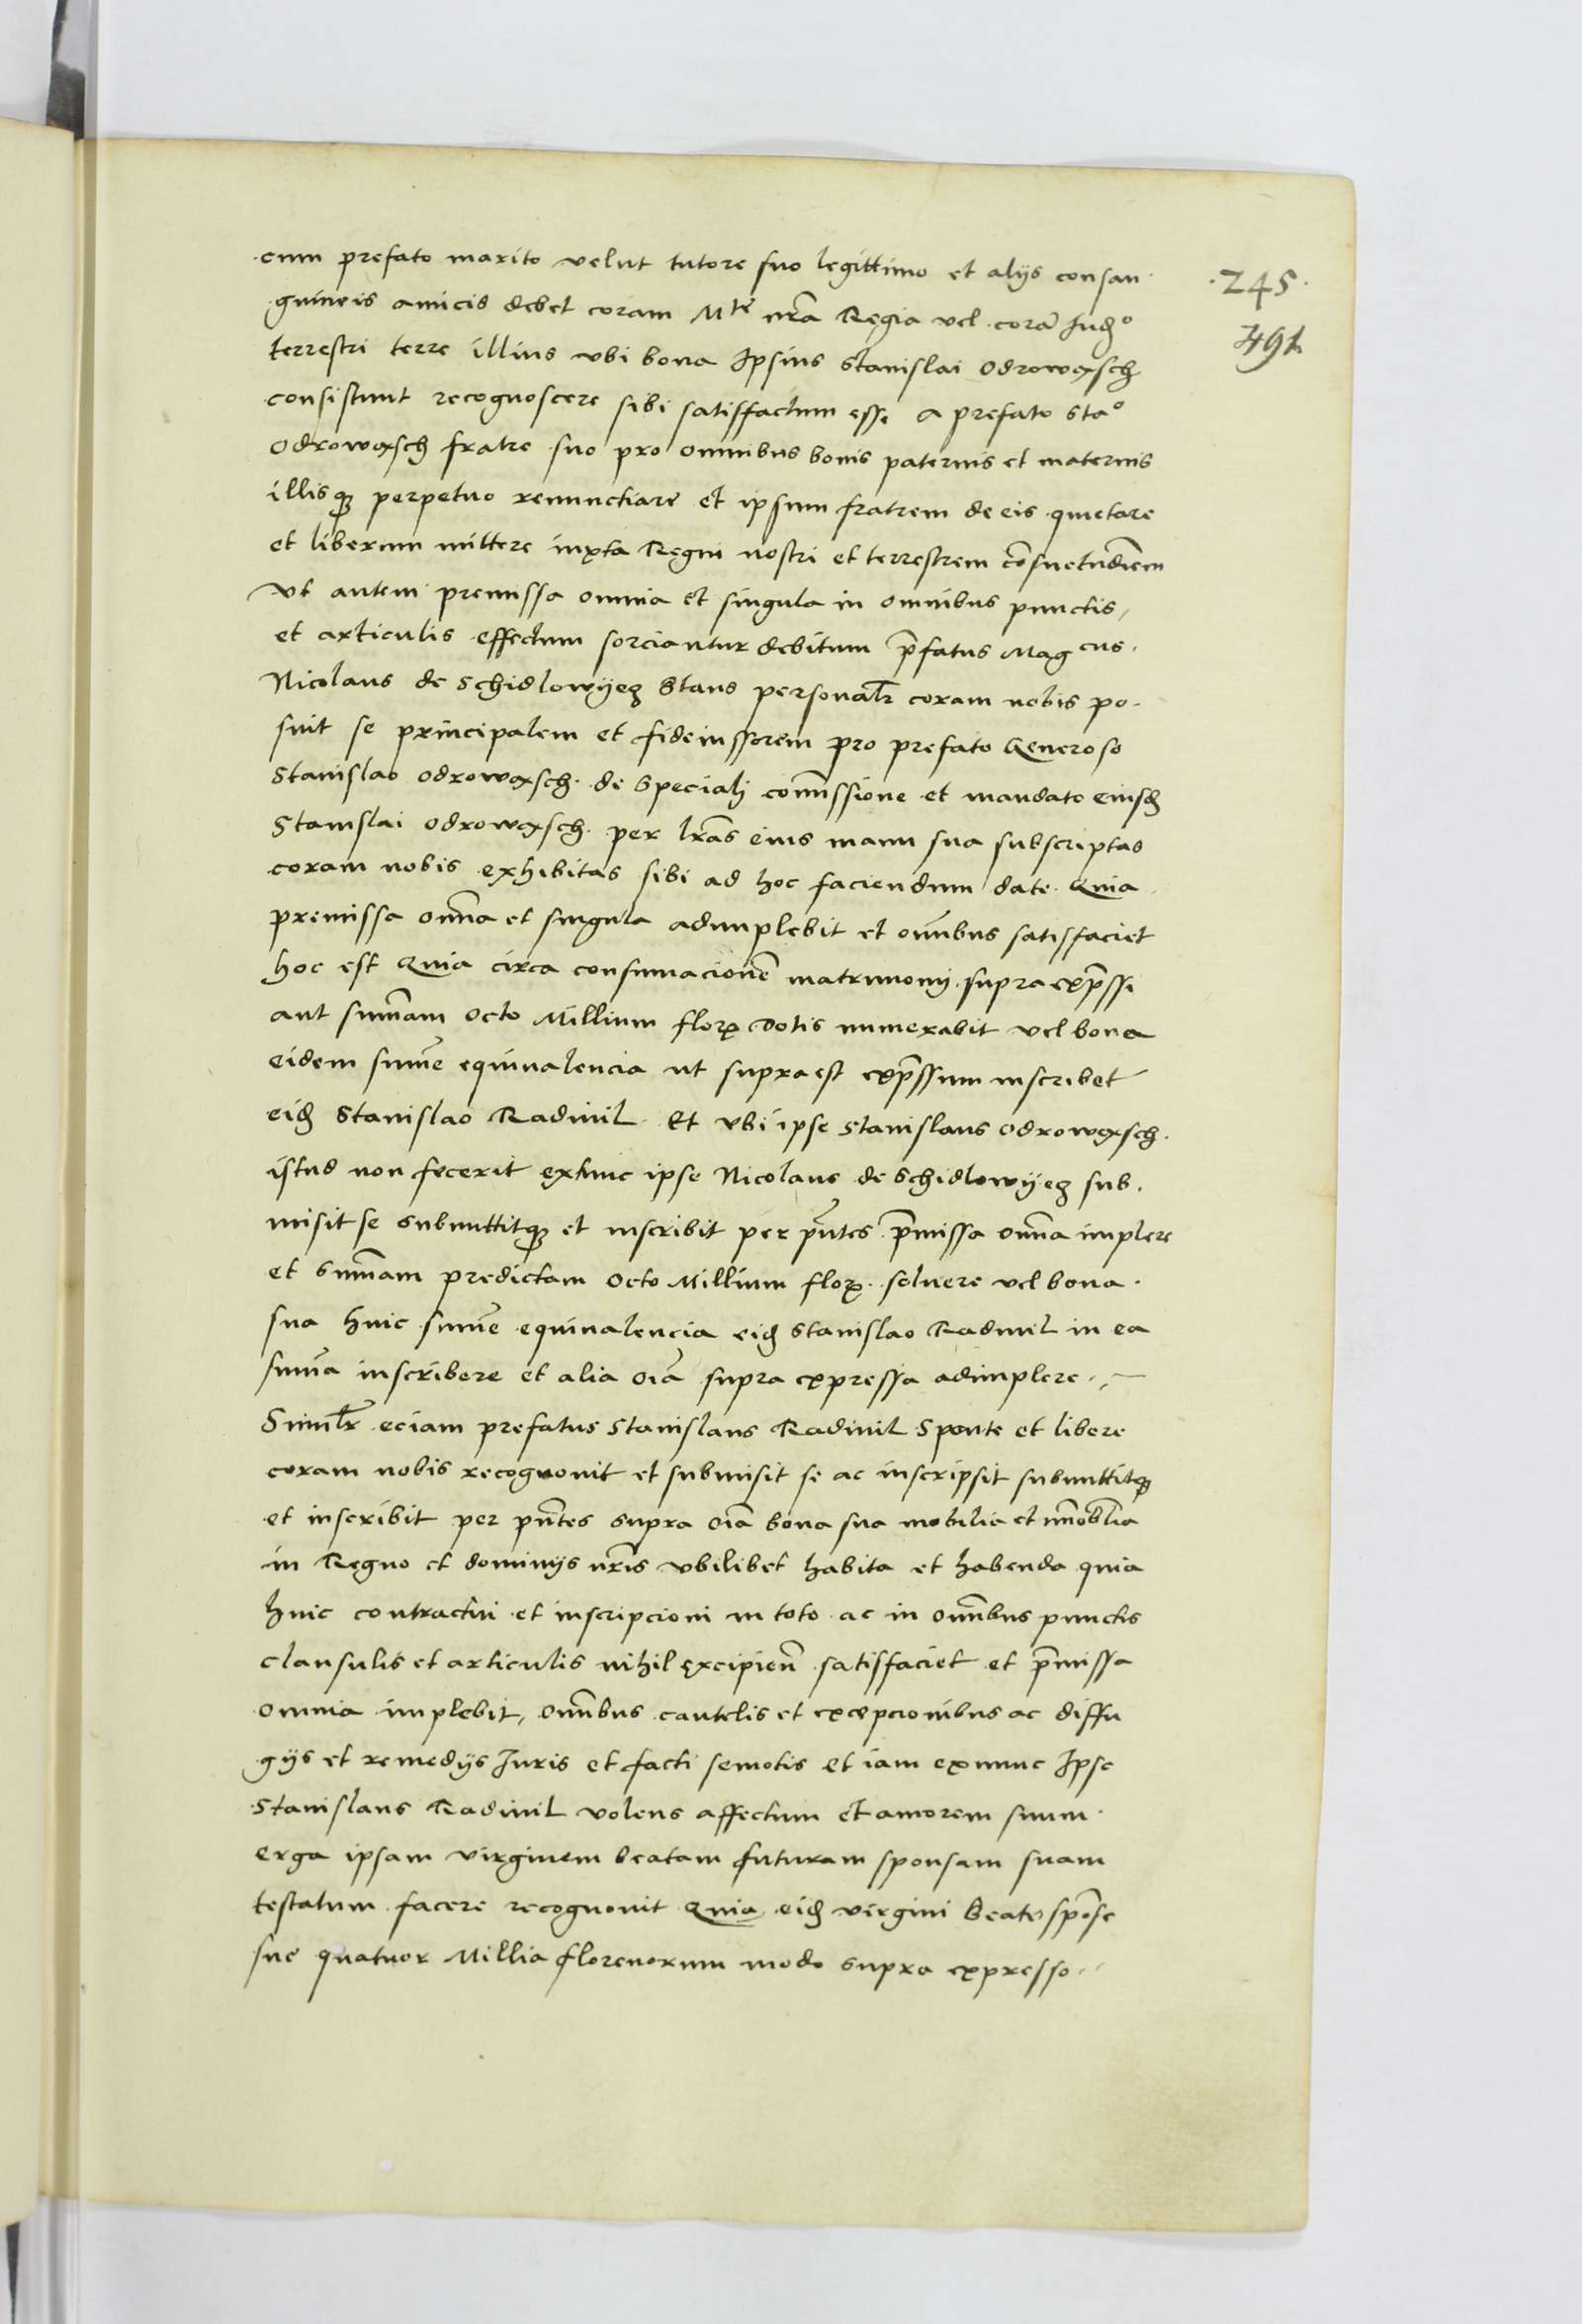 cum prefato marito velut tutore suo legittimo et alijs consan
guineis amicis debet coram Mte nra Regia vel cora Jud°
terrestri terre illius vbi bona Ipsius Stanislai Odrowasch
consistunt recognoscere sibi satisffactum esse a prefato Sta°
Odrowasch fratre suo pro omnibus bonis paternis et maternis
illisq perpetuo renunctiare et ipsum fratrem de eis quietare
et liberum mittere iuxta Regni nostri et terrestrem cosuetudiem
Vt autem premissa omnia et singula in omnibus punctis,
et articulis effectum sorciantur debitum pfatus Magcus.
Nicolaus de Schidlowyecz Stans personalr coram nobis po-
suit se principalem et fideiussorem pro prefato Generoso
Stanislao Odrowasch. de Speciali comissione et mandato eiusd
Stanislai Odrowasch. per lras eius manu sua subscriptas
coram nobis exhibitas sibi ad hoc faciendum date. Quia
premissa omia et singula adimplebit et omibus satisfaciet
hoc est Quia circa consumacione matrimonij supra expssi
aut sumam Octo Millium flor Dotis numerabit vel bona
eidem sume equiualencia ut supra est expssum inscribet
eid Stanislao Radiuil. Et vbi ipse Stanislaus Odrowasch.
istud non fecerit extunc ipse Nicolaus de Schidlowyecz sub.
misit se submittitq et inscribit per pntes pmissa omia implere
et Sumam predictam Octo Millium flor. soluere vel bona.
sua huic sume equiualencia eid Stanislao Radiuil in ea
suma inscribere et alia oia supra expressa adimplere.
Similr eciam prefatus Stanislaus Radiuil Sponte et libere
coram nobis recognouit et submisit se ac inscripsit submittitq
et inscribit per pntes supra oia bona sua mobilia et imobilia
in Regno et dominijs nris vbilibet habita et habenda quia
huic contractui et inscripcioni in toto ac in omibus punctis
clausulis et articulis nihil excipien satisfaciet et pmissa
omnia implebit, omibus cautelis et excepcionibus ac diffu
gijs et remedijs Juris et facti semotis Et iam exnunc Ipse
Stanislaus Radiuil volens affectum et amorem suum.
erga ipsam virginem beatam futuram sponsam suam
testatum facere recognouit Quia eid virgini Beate sponse
sue quatuor Millia florenorum modo supra expresso
.245.
491